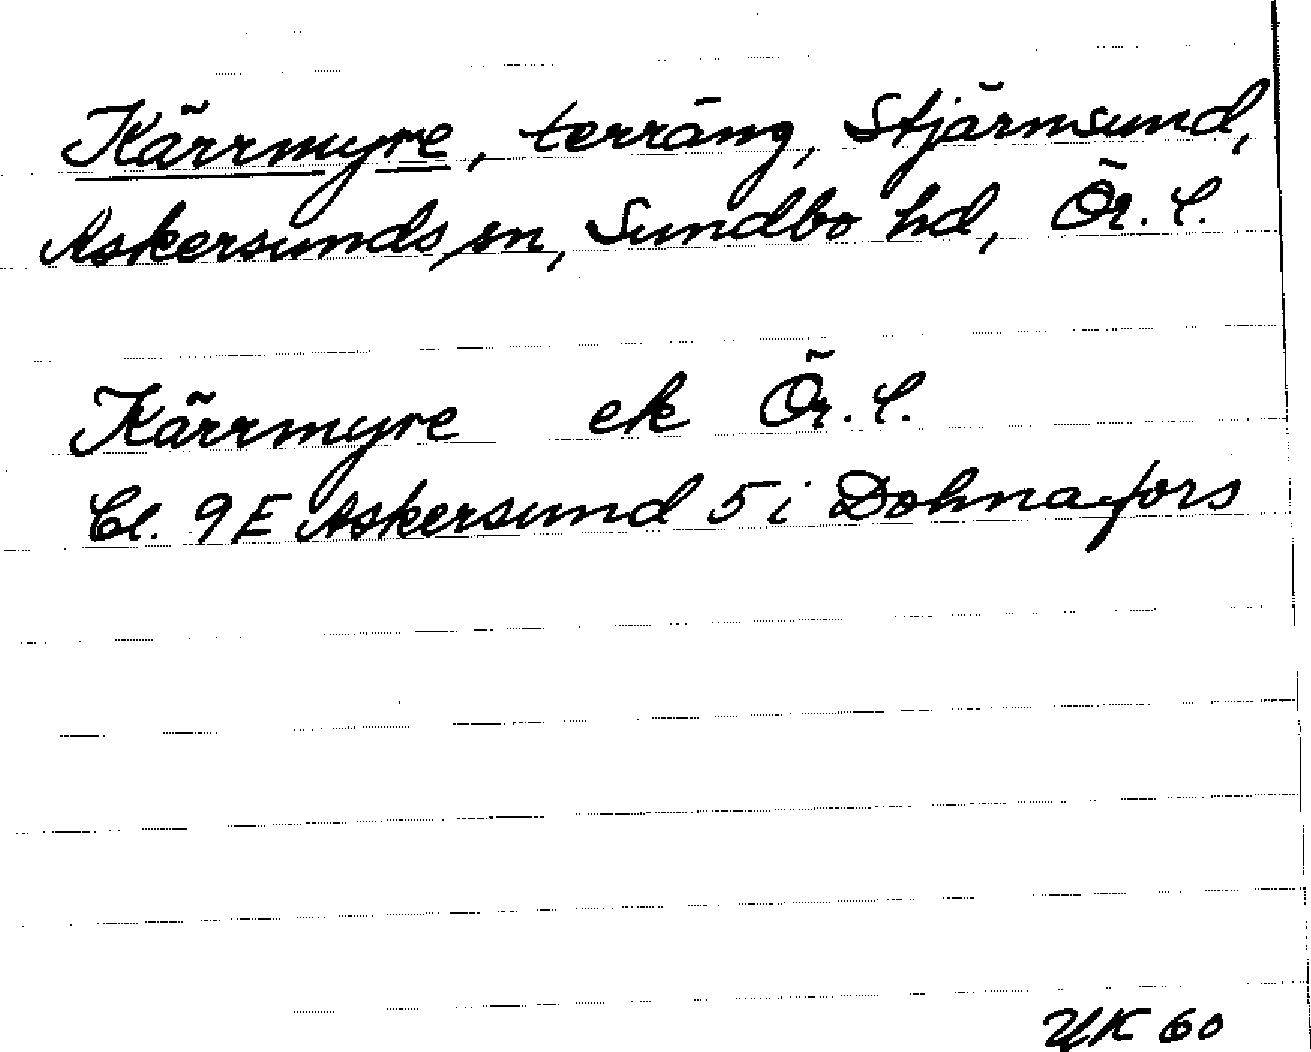 Kärrmyre, terräng, Stjärnsund,
Askersunds sn, Sundbo hd, Ör. l.
Kärrmyre ek Ör. l.
Bl. 9 E Askersund 5 i Dohnafors
YK 60